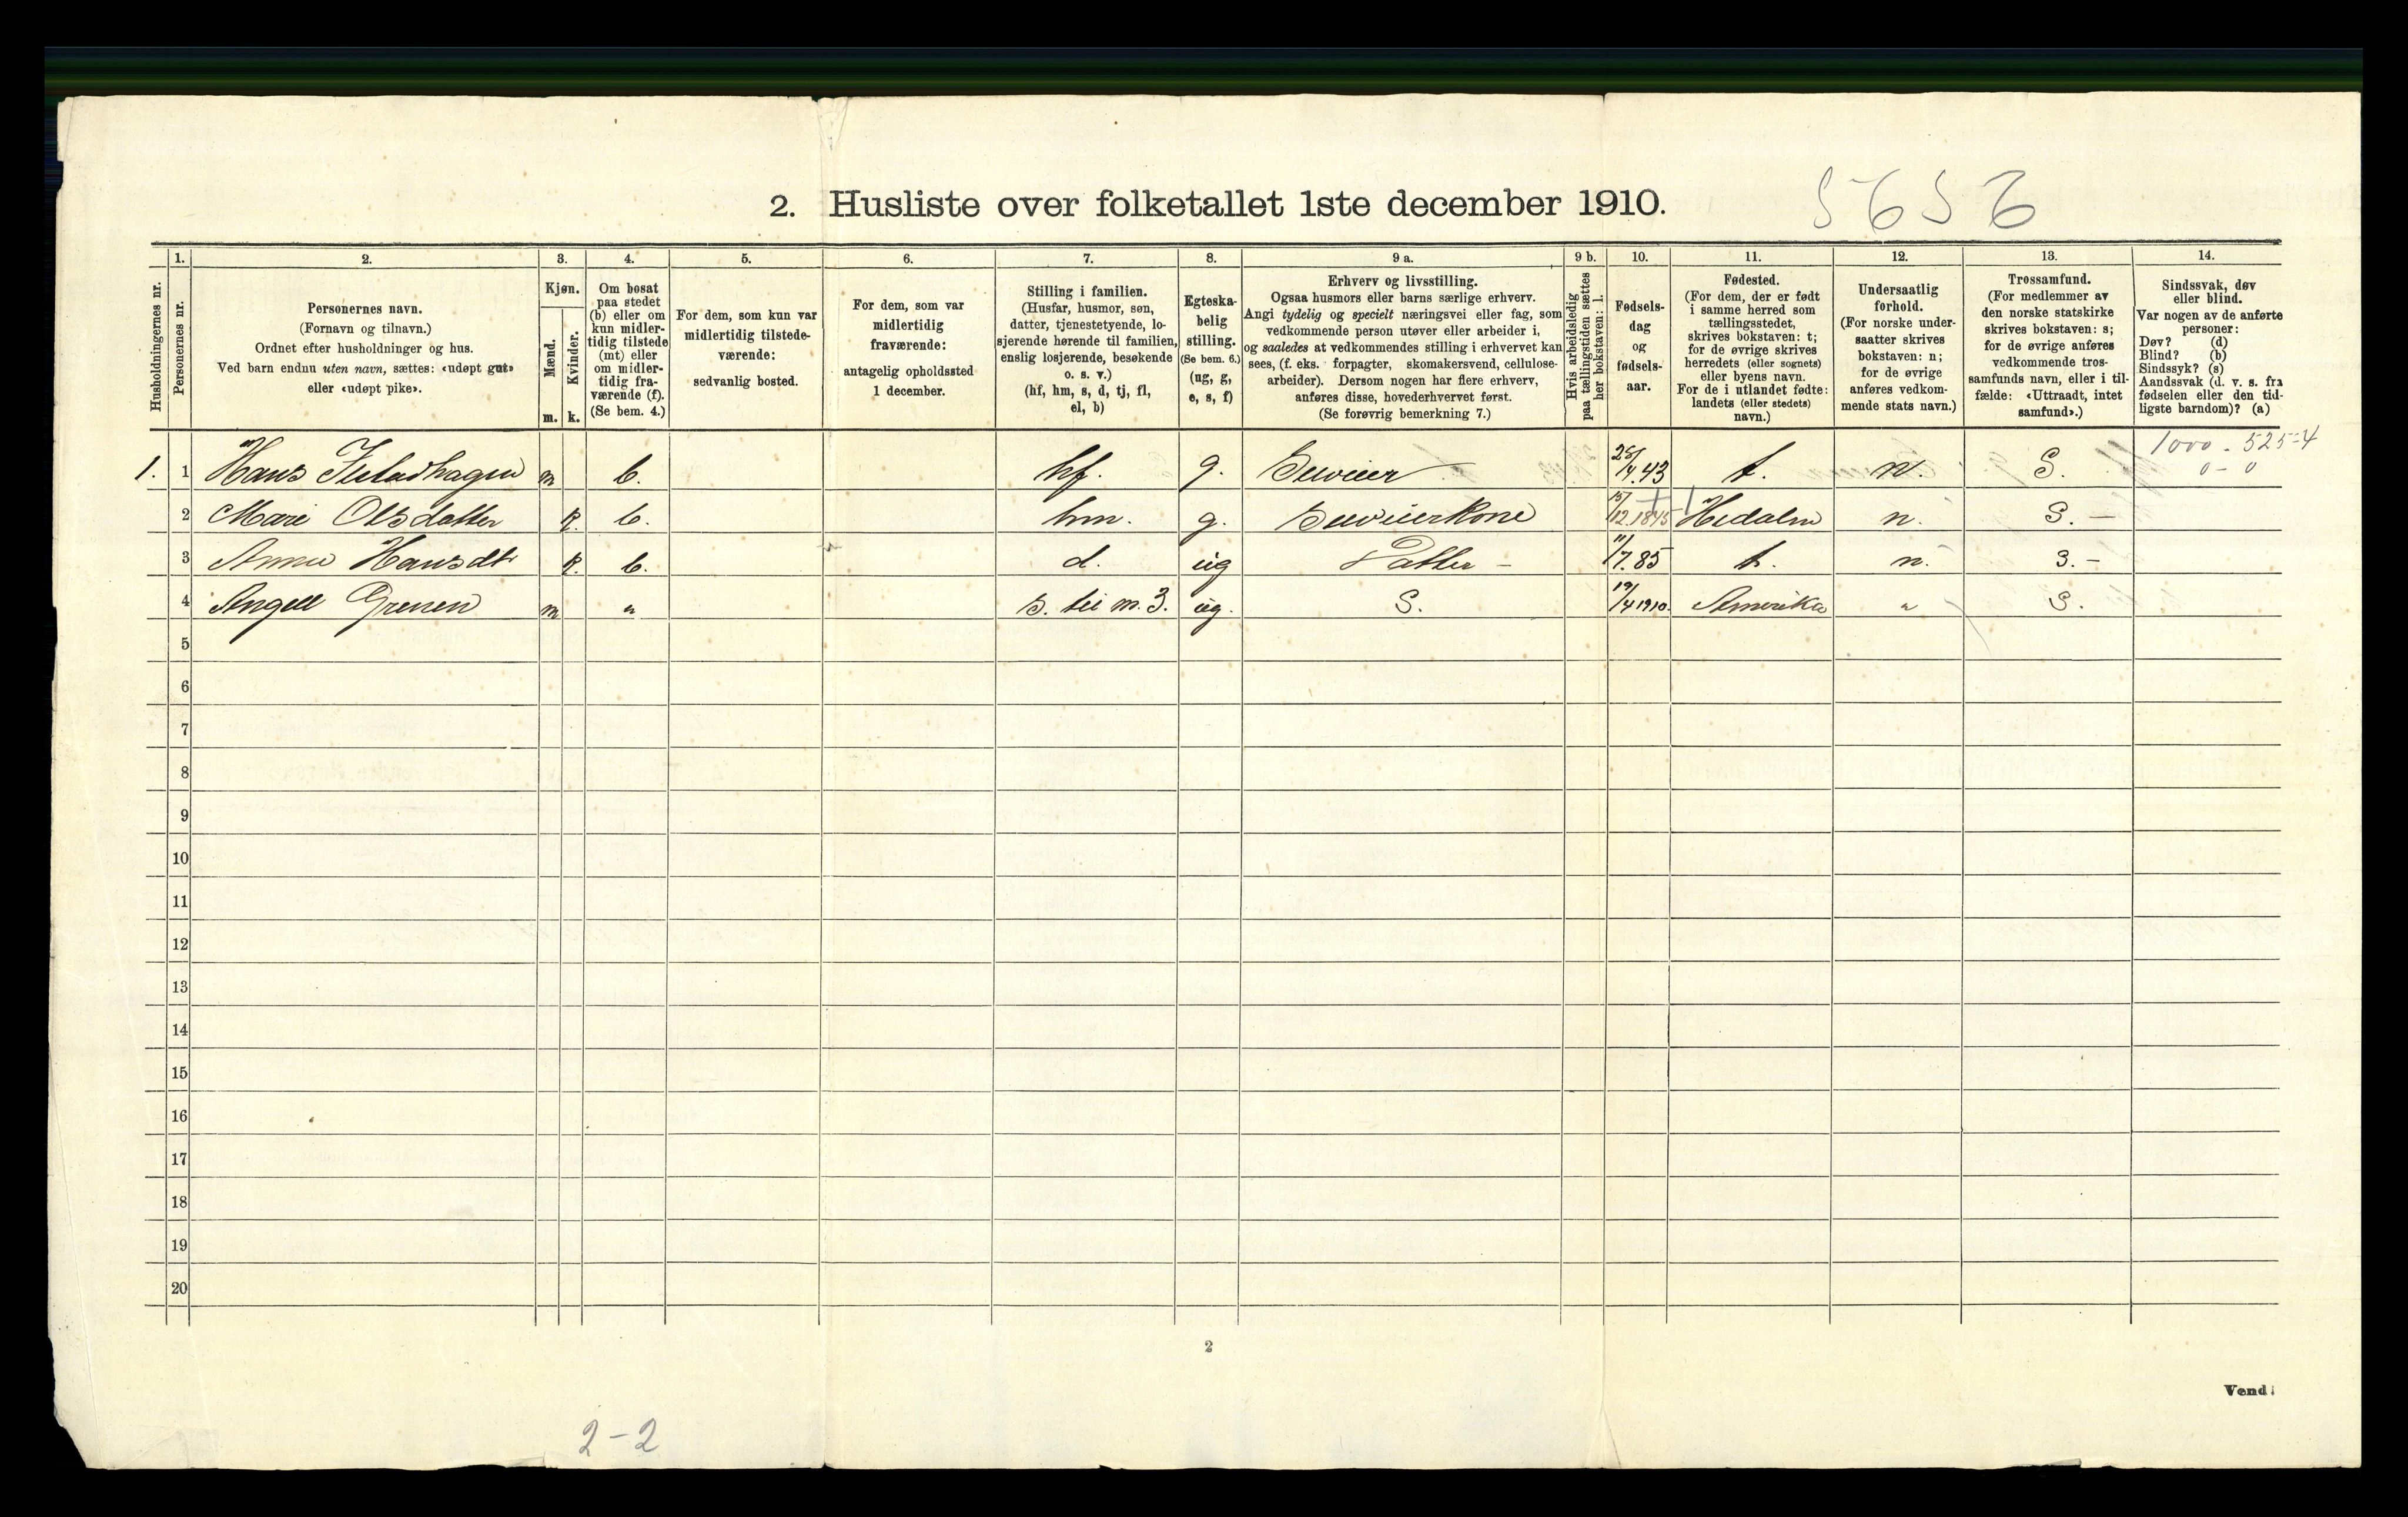 5656
2. Husliste over folketallet 1ste december 1910.
Husholdningernes nr.
1.
Personernes nr.
2.
Personernes navn.
(Fornavn og tilnavn.)
Ordnet efter husholdninger og hus.
Ved barn endnu uten navn, sættes: «udøpt gut»
eller «udøpt pike».
3.
Kjøn.
Mænd.
m.
Kvinder.
k.
4.
Om bosat
paa stedet
(b) eller om
kun midler-
tidig tilstede
(mt) eller
om midler-
tidig fra-
værende (f).
(Se bem. 4.)
5.
For dem, som kun var
midlertidig tilstede-
værende:
sedvanlig bosted.
6.
For dem, som var
midlertidig
fraværende:
antagelig opholdssted
1 december.
7.
Stilling i familien.
(Husfar, husmor, søn,
datter, tjenestetyende, lo-
sjerende hørende til familien,
enslig losjerende, besøkende
o. s. v.)
(hf, hm, s, d, tj, fl,
el, b)
8.
Egteska-
belig
stilling.
(Se bem. 6.)
(ug, g,
e, s, f)
9 a.
Erhverv og livsstilling.
Ogsaa husmors eller barns særlige erhverv.
Angi tydelig og specielt næringsvei eller fag, som
vedkommende person utøver eller arbeider i,
og saaledes at vedkommendes stilling i erhvervet kan
sees, (f. eks. forpagter, skomakersvend, cellulose-
arbeider). Dersom nogen har flere erhverv,
anføres disse, hovederhvervet først.
(Se forøvrig bemerkning 7.)
9 b.
Hvis arbeidsledig
paa tællingstiden sættes
her bokstaven: l.
10.
Fødsels-
dag
og
fødsels-
aar.
11.
Fødested.
(For dem, der er født
i samme herred som
tællingsstedet,
skrives bokstaven: t;
for de øvrige skrives
herredets (eller sognets)
eller byens navn.
For de i utlandet fødte:
landets (eller stedets)
navn.)
12.
Undersaatlig
forhold.
(For norske under-
saatter skrives
bokstaven: n;
for de øvrige
anføres vedkom-
mende stats navn.)
13.
Trossamfund.
(For medlemmer av
den norske statskirke
skrives bokstaven: s;
for de øvrige anføres
vedkommende tros-
samfunds navn, eller i til-
fælde: «Uttraadt, intet
samfund».)
14.
Sindssvak, døv
eller blind.
Var nogen av de anførte
personer:
Døv? (d)
Blind? (b)
Sindssyk? (s)
Aandssvak (d. v. s. fra
fødselen eller den tid-
ligste barndom)? (a)
1000 - 525-4
0 - 0
1. 1 Hans m b. hf. g. 25/4.43 t. n. S.
2 Mari Olsdatter k. b. hm. g. 15/12.1845 Hedalen n. S. -
3 Anna Hansdtr k. b. d. ug Datter - 11/7.85 t. n. S. -
4 Angell Grenen m " s. til m. 3. ug. S. 19/4 1910. Amerika " S.
5
6
7
8
9
10
11
12
13
14
15
16
17
18
19
20
2
Vend!
2-2